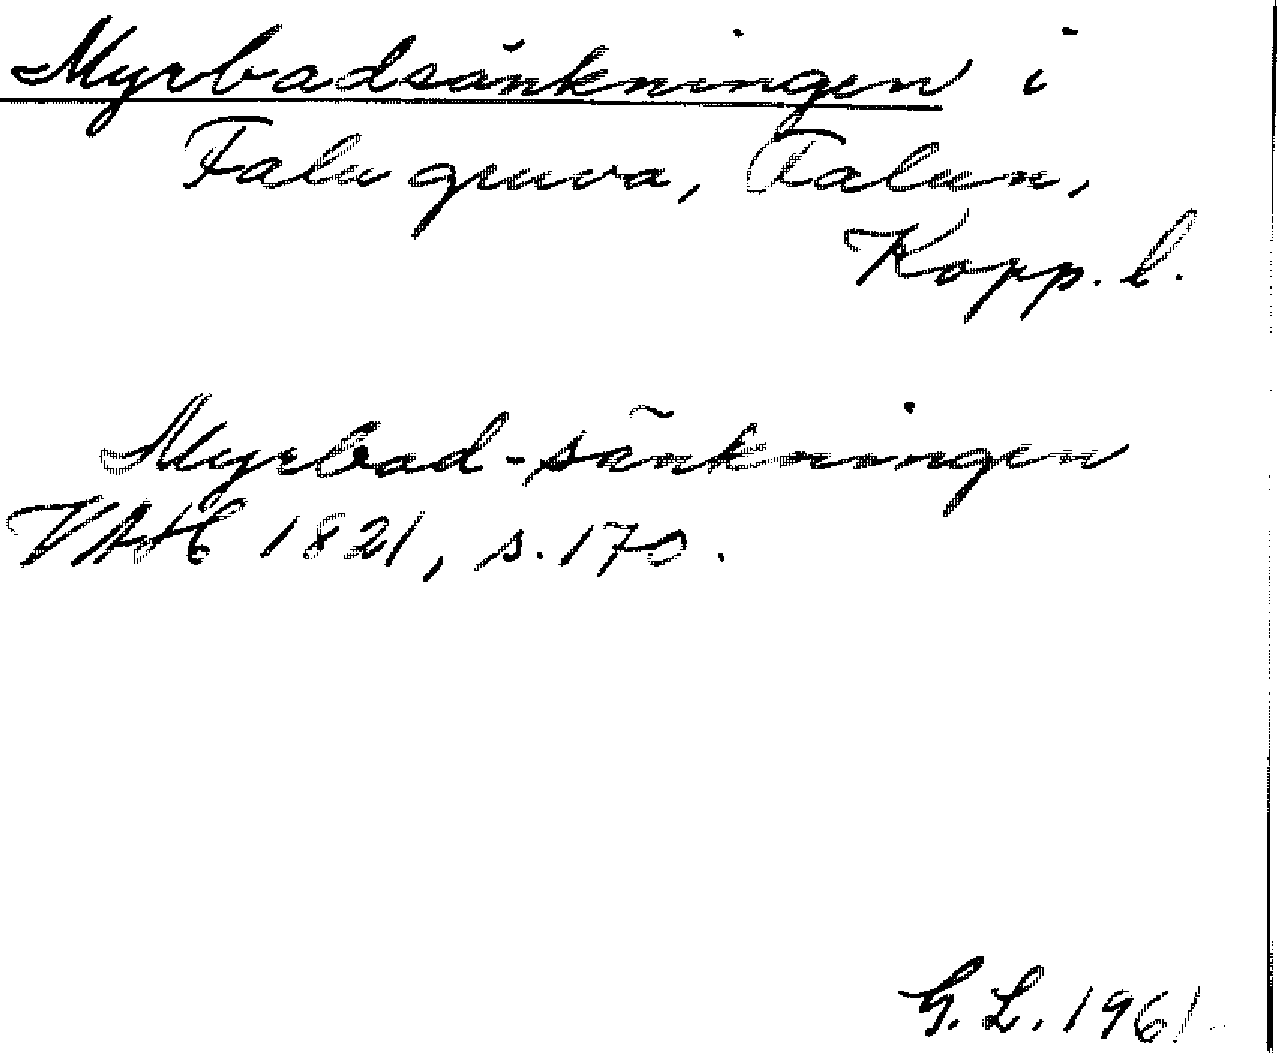 Myrbadsänkningen i
Falu gruva, Falun,
Kopp. l.
Myrbad-sänkningen
VAH 1821, s. 170.
G. L. 1961.